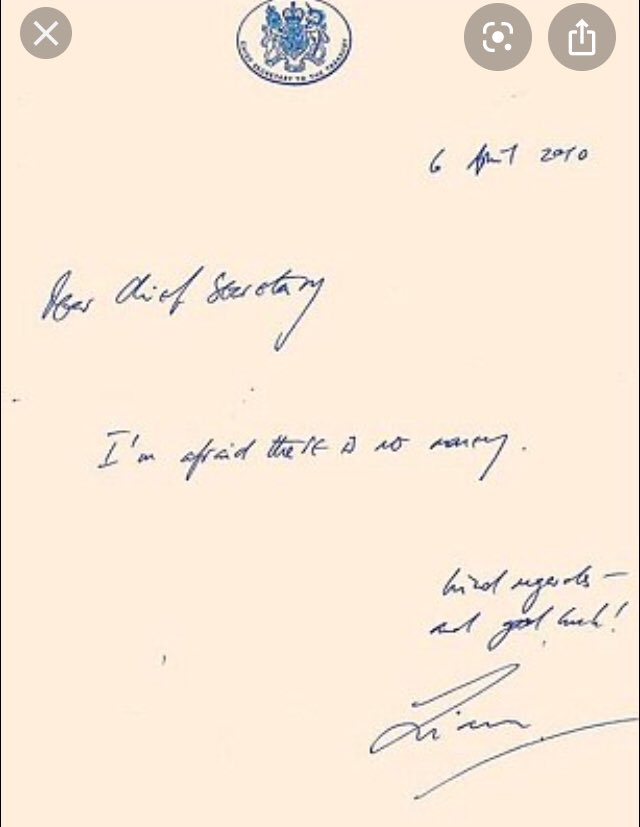 CHIEF SECRETARY TO THE TREASURY
6 April 2010
Dear Chief Secretary
I'm afraid there is no money.
kind regards –
and good luck!
Liam